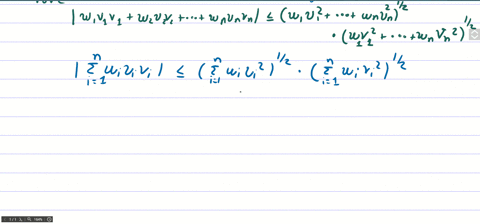 | w₁v₁v₁ + w₂v₂v₂ + ··· + wₙvₙvₙ | ≤ (w₁v₁² + ··· + wₙvₙ²)^1/2
· (w₁v₁² + ··· + wₙvₙ²)^1/2
| Σⁿᵢ₌₁ wᵢvᵢvᵢ | ≤ (Σⁿᵢ₌₁ wᵢvᵢ²)^1/2 · (Σⁿᵢ₌₁ wᵢvᵢ²)^1/2